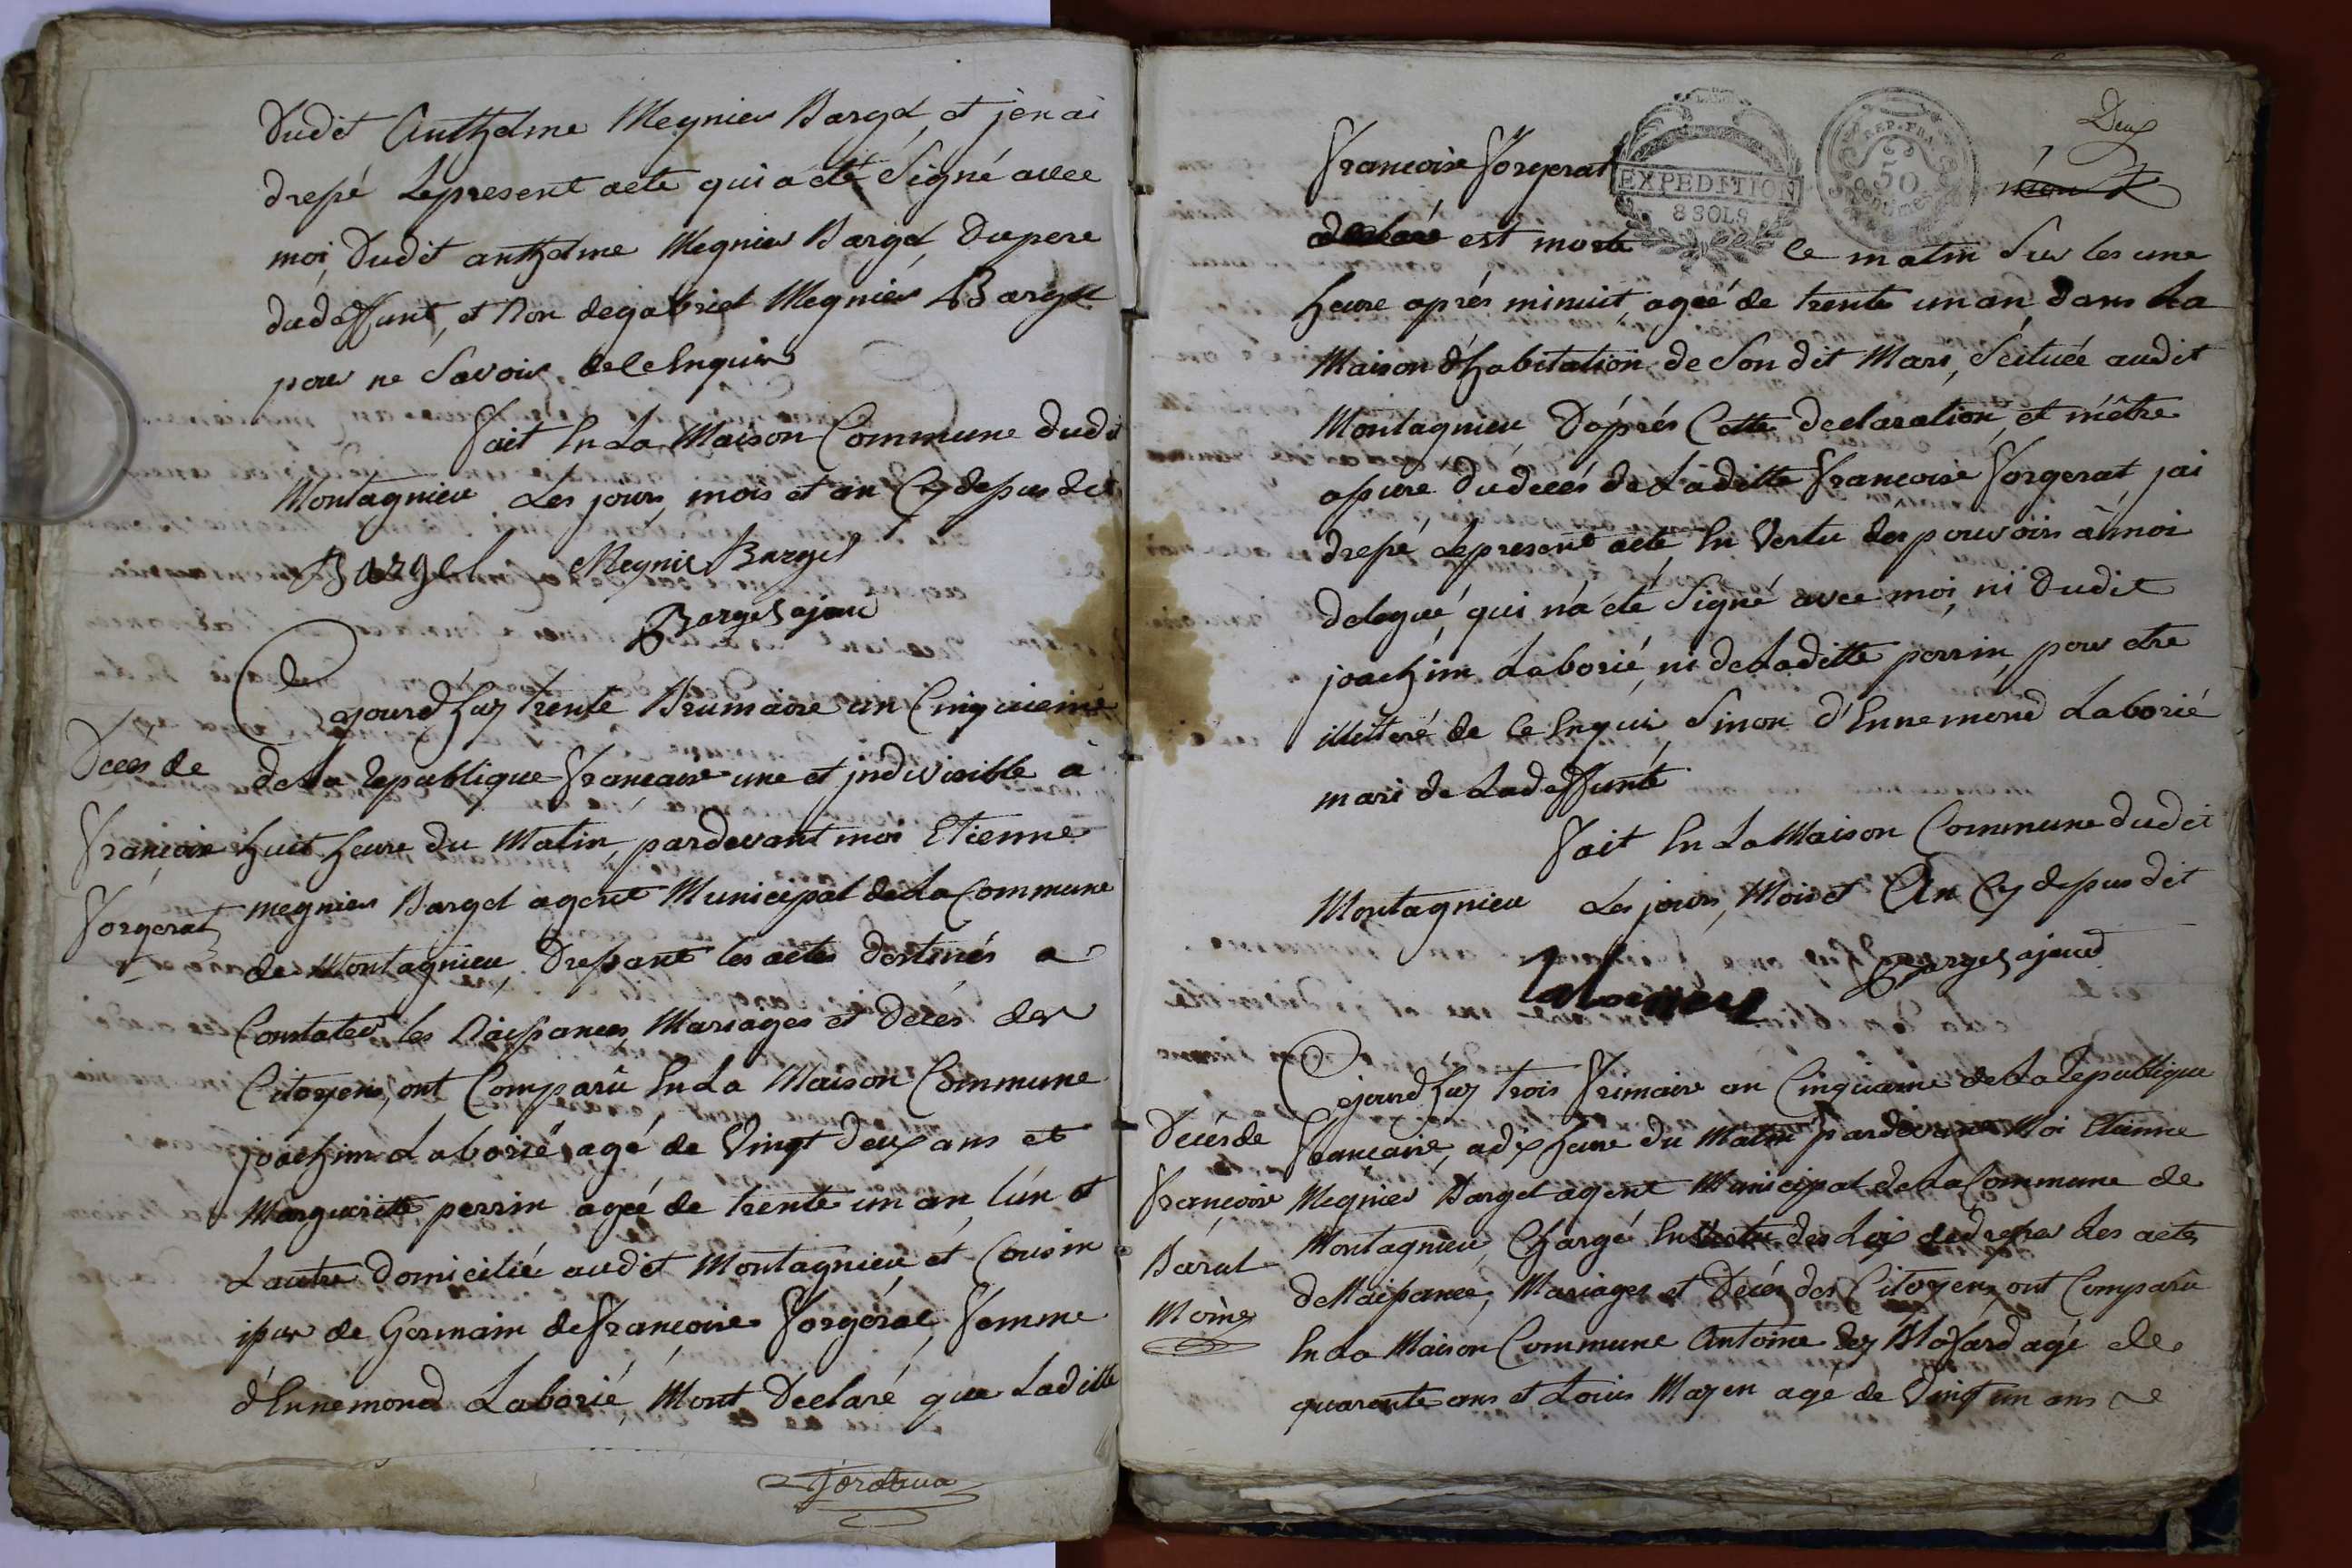 Dudit Anthelme Megnier Bargel, et jen ai
dressé le present acte qui a été Signé avec
moi, Dudit anthelme Megnier Bargel, du pere
dudeffunt, et Non de gabriel Megnier Bargel
pour ne Savoir de ce Enquis
Fait En La Maison Commune dudi
Montagnieu Les jour, mois et an Cy dessus dit
Bargel Megnie Bargel
Bargel ajent
Cejourd'huy trente Brumaire an Cinquieme
Décès de
Françoise
Forgerat
de La Republique Francaise une et jndivisible à
huit heure du Matin, pardevant moi Etienne
megnier Bargel agent Municipal de La Commune
de Montagnieu, Dressant les actes destinés a
Constater les Naissances, Mariages et Décés des
Citoyens, ont Comparû En La Maison Commune
joachim Laborié agé de Vingt deux ans et
Marguerite perrin ageé de trente un an, l'un et
Lautre Domicilié audit Montagnieu, et Cousin
issus de Germain de Francoise Forgérat, Femme
d'Ennemond Laborié, Mont Declaré que Laditte
Deux
Francoise Forgerat
EXPEDITION
8 SOLS
REP. FRA
50
Centimes
est morte ce matin Sur les une
heure aprés minuit, ageé de trente un an, dans La
Maison d'habitation de Son dit Mari, Scituée audit
Montagnieu, D'aprés Cette declaration, et m'être
assure du decés de Laditte Francoise Forgerat jai
dressé Le present acte En Vertu des pouvoirs à moi
delegué, qui n'a été Signé avec moi, ni Dudit
joachim Laborié, ni de Laditte perrin, pour etre
illetteré de ce Enquis, Sinon d'Ennemond Laborié
mari de Ladeffunte
Fait En La Maison Commune dudit
Montagnieu Les jour, Mois et An Cy dessus dit
Bargel ajent
Cejourd'huy trois Frimaire an Cinquieme de La Republique
Décés de
Francoise
Barat
Moine
Francaise, a dix heure du Matin pardevant Moi Etienne
Megnier Bargel agent Municipal de La Commune de
Montagnieu, Chargé En Vertu des Lois de dresser Les actes
de Naissance, Mariages et Décés des Citoyens, ont Comparu
En La Maison Commune Antoine agé de
quarente ans et Louis Mayen agé de Vingt un ans